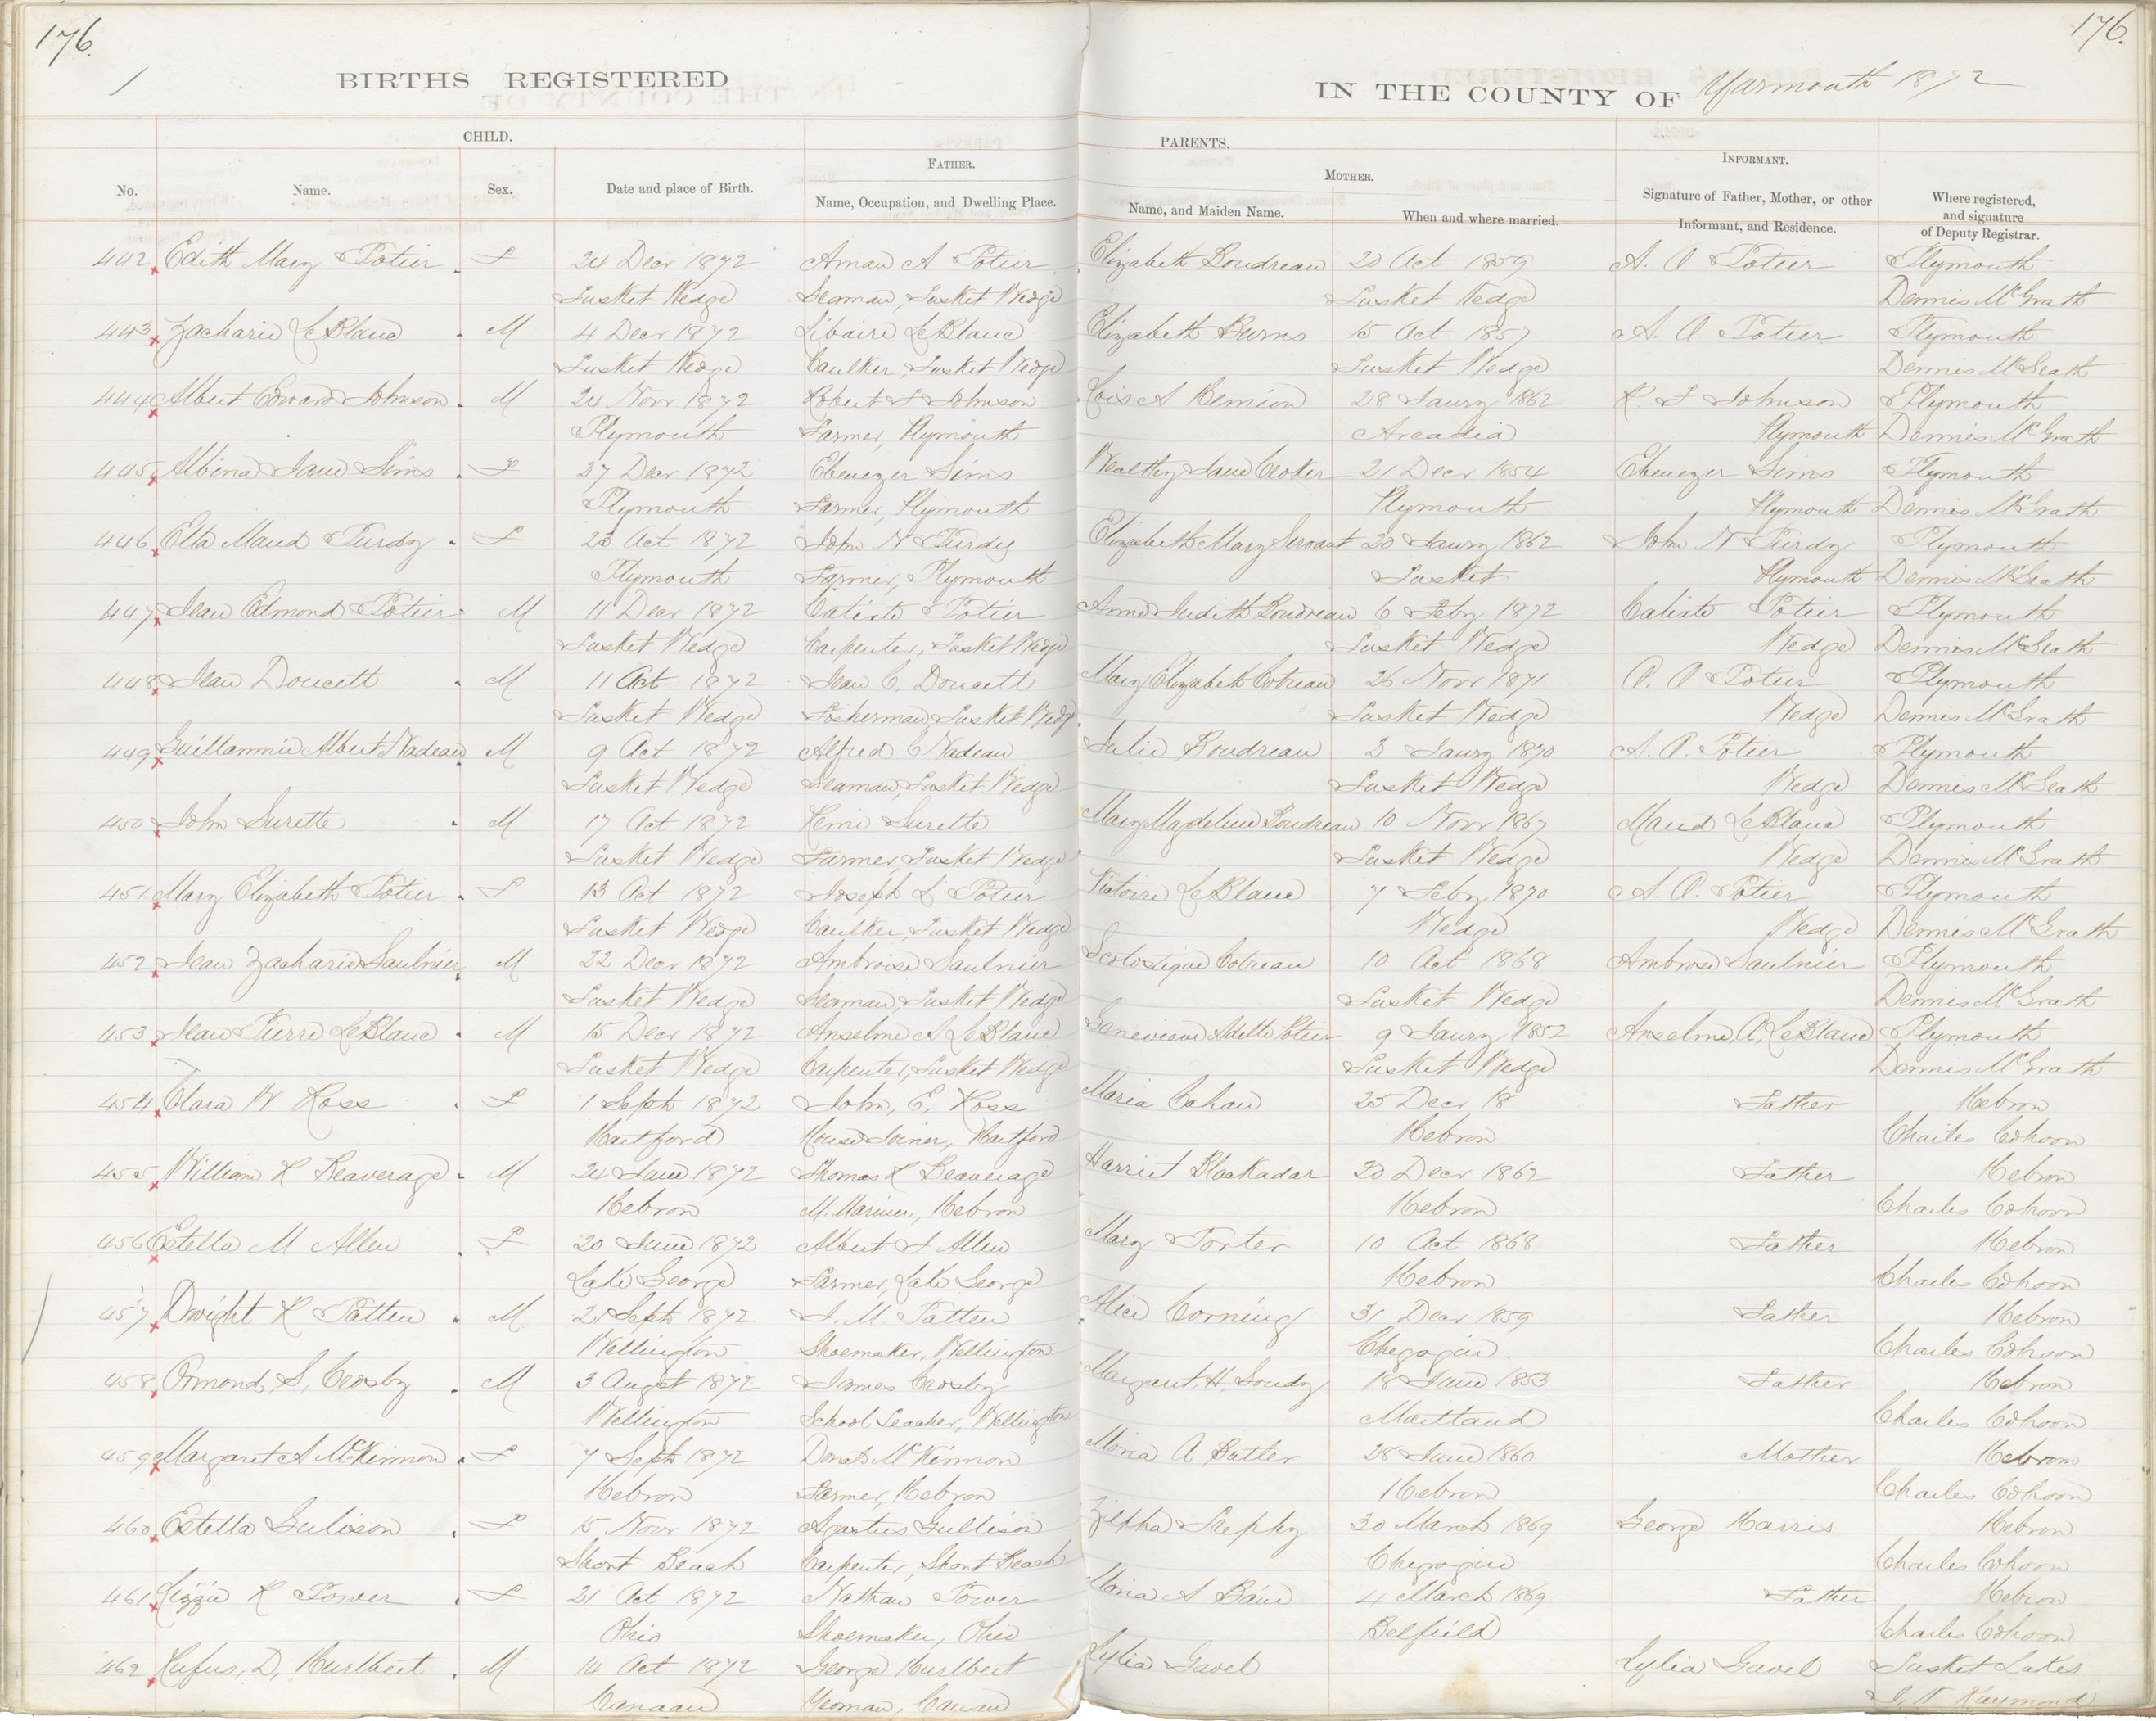 176.
176.
BIRTHS REGISTERED
IN THE COUNTY OF Yarmouth 1872
CHILD.
PARENTS.
FATHER.
MOTHER.
INFORMANT.
No.
Name.
Sex.
Date and place of Birth.
Name, Occupation, and Dwelling Place.
Name, and Maiden Name.
When and where married.
Signature of Father, Mother, or other
Informant, and Residence.
Where registered,
and signature
of Deputy Registrar.
442 Edith Mary Potier F 24 Decr 1872 Aman A Potier Elizabeth Boudreau 20 Oct 1859 A. A Potier Plymouth
Tusket Wedge Seaman, Tusket Wedge Tusket Wedge Dennis McGrath
443 Zacharie LeBlanc M 4 Decr 1872 Libaire LeBlanc Elizabeth Burns 15 Oct 1857 A. A Potier Plymouth
Tusket Wedge Caulker, Tusket Wedge Tusket Wedge Dennis McGrath
444 Albert Edward Johnson M 24 Novr 1872 Robert Johnson Lois A 28 Jaury 1862 Johnson Plymouth
Plymouth Farmer, Plymouth Arcadia Plymouth Dennis McGrath
445 Albina Jane Sims F 27 Decr 1872 Ebenezer Sims Wealthy Jane Croker 21 Decr 1854 Ebenezer Sims Plymouth
Plymouth Farmer, Plymouth Plymouth Plymouth Dennis McGrath
446 Etta Maud Purdy F Oct 1872 John N Purdy Elizabeth Mary Servant 20 Jaury 1862 John N Purdy Plymouth
Plymouth Farmer, Plymouth Tusket Plymouth Dennis McGrath
447 Jean Edmond Potier M 11 Decr 1872 Caliste Potier Anne Judith Boudreau 6 Feby 1872 Caliste Potier Plymouth
Tusket Wedge Carpenter, Tusket Wedge Tusket Wedge Wedge Dennis McGrath
448 Jean Doucett M 11 Oct 1872 Jean C. Doucett Mary Elizabeth Cotreau 26 Novr 1871 A. A Potier Plymouth
Tusket Wedge Fisherman, Tusket Wedge Tusket Wedge Wedge Dennis McGrath
449 Guillammie Albert Nadeau M 9 Oct 1872 Alfred C Nadeau Julie Boudreau 3 Jaury 1870 A. A. Potier Plymouth
Tusket Wedge Seaman, Tusket Wedge Tusket Wedge Wedge Dennis McGrath
450 John Surette M 17 Oct 1872 Henri Surette Mary Magdeline Boudreau 10 Novr 1867 Maud LeBlanc Plymouth
Tusket Wedge Farmer, Tusket Wedge Tusket Wedge Wedge Dennis McGrath
451 Mary Elizabeth Potier F 13 Oct 1872 Joseph L Potier Victoire LeBlanc 7 Feby 1870 A. A. Potier Plymouth
Tusket Wedge Caulker, Tusket Wedge Wedge Wedge Dennis McGrath
452 Jean Zacharie Saulnier M 22 Decr 1872 Ambroise Saulnier Scolostique Cotreau 10 Oct 1868 Ambrose Saulnier Plymouth
Tusket Wedge Seaman, Tusket Wedge Tusket Wedge Dennis McGrath
453 Jean Pierre LeBlanc M 15 Decr 1872 Anselme A LeBlanc Genevieve Adelle Potier 9 Jaury 1852 Anselme, A, LeBlanc Plymouth
Tusket Wedge Carpenter, Tusket Wedge Tusket Wedge Dennis McGrath
454 Clara W Ross F 1 Sept 1872 John, E, Ross Maria Cahan 25 Decr 18 Father Hebron
Hartford House Joiner, Hartford Hebron Charles Cohoon
455 William H Beaverage M 24 June 1872 Thomas H Beaverage Harriet Blackadar 20 Decr 1862 Father Hebron
Hebron M. Mariner, Hebron Hebron Charles Cohoon
456 Estella M Allen F 20 June 1872 Albert J Allen Mary Porter 10 Oct 1868 Father Hebron
Lake George Farmer, Lake George Hebron Charles Cohoon
457 Dwight H Patten M 21 Sept 1872 M. Patten Alice Corning 31 Decr 1859 Father Hebron
Wellington Shoemaker, Wellington Chegogin Charles Cohoon
458 Ormond, S, Crosby M 3 Augst 1872 James Crosby Margaret, H, Goudy 18 June 1853 Father Hebron
Wellington School Teacher, Wellington Maitland Charles Cohoon
459 Margaret A McKinnon F 7 Sept 1872 Donald McKinnon Moria A Butler 28 June 1860 Mother Hebron
Hebron Farmer, Hebron Hebron Charles Cohoon
460 Estella Gulison F 15 Novr 1872 Agustus Gullison Zilpha 30 March 1869 George Harris Hebron
Short Beach Carpenter, Short Beach Chegogin Charles Cohoon
461 Lizzie H Power F 21 Oct 1872 Nathan Power Moria A Bain 4 March 1869 Father Hebron
Ohio Shoemaker, Ohio Belfield Charles Cohoon
462 Rufus, D, Hurlbert M 14 Oct 1872 George Hurlbert Lylia Gavel Lylia Gavel Tusket Lakes
Canaan Yeoman, Canan Raymond